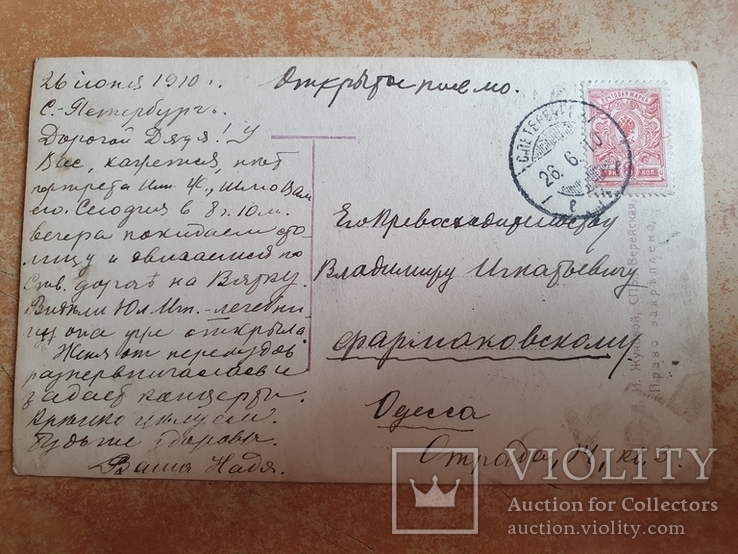 26 июня 1910 г.
С.-Петербургъ.
Дорогой Дядя! У
Васъ, кажется, нѣтъ
портрета Имп. , шлю Вамъ
его. Сегодня в 8 ч. 10 м.
вечера покидаем сто-
лицу и двигаемся по
Сѣв. дорогѣ на Вятку.
Видѣли Юл. Иг. - лечебни-
цу она уже открыла.
Женя от переѣздов
разнервничалась и
задает концерты.
Крѣпко цѣлуем.
Будьте здоровы.
Ваша Надя.
Открытое письмо.
С.ПЕТЕРБУРГ
26.6.10
Его Превосходительству
Владимиру Игнатьевичу
Фармаковскому
Одесса
Отрада, 14, кв. 3.
Жуковой, СПб. Верейская,
Право закрѣплено.
VIOLITY
Auction for Collectors
auction.violity.com